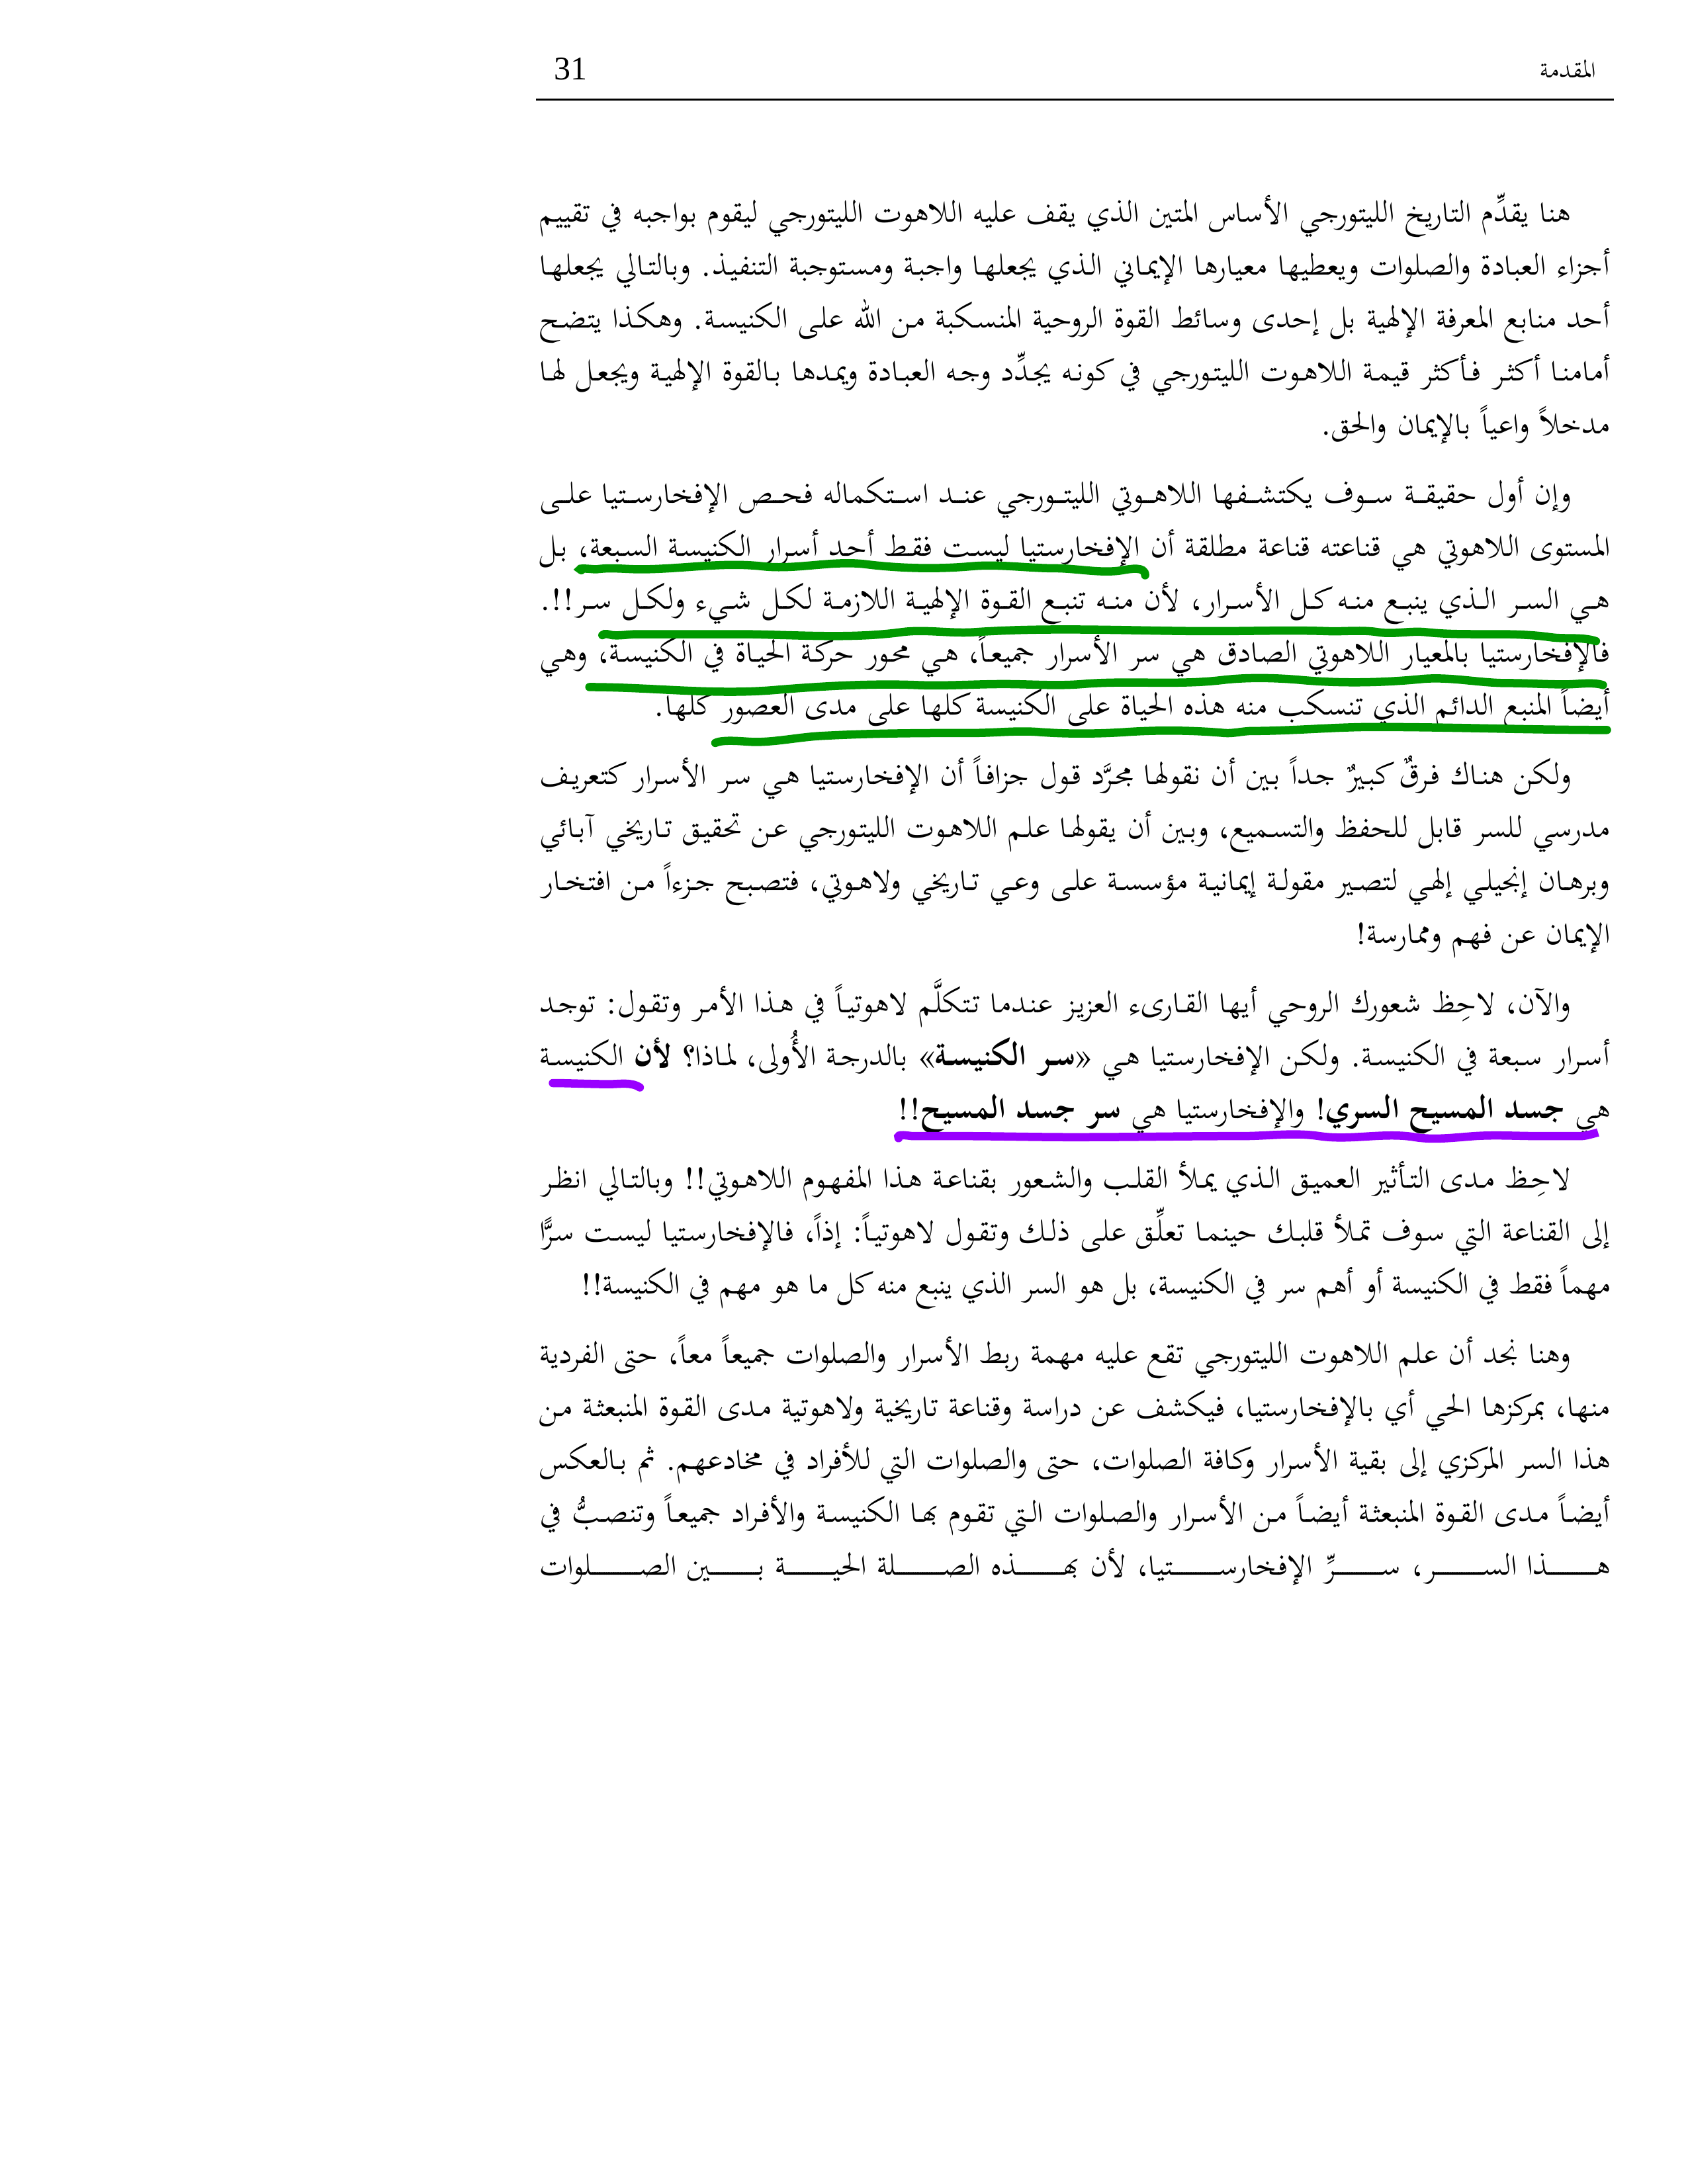 المقدمة 31
هنا يقدِّم التاريخ الليتورجي الأساس المتين الذي يقف عليه اللاهوت الليتورجي ليقوم بواجبه في تقييم
أجزاء العبادة والصلوات ويعطيها معيارها الإيماني الذي يجعلها واجبة ومستوجبة التنفيذ. وبالتالي يجعلها
أحد منابع المعرفة الإلهية بل إحدى وسائط القوة الروحية المنسكبة من الله على الكنيسة. وهكذا يتضح
أمامنا أكثر فأكثر قيمة اللاهوت الليتورجي في كونه يجدِّد وجه العبادة ويمدها بالقوة الإلهية ويجعل لها
مدخلاً واعياً بالإيمان والحق.
وإن أول حقيقة سوف يكتشفها اللاهوتي الليتورجي عند استكماله فحص الإفخارستيا على
المستوى اللاهوتي هي قناعته قناعة مطلقة أن الإفخارستيا ليست فقط أحد أسرار الكنيسة السبعة، بل
هي السر الذي ينبع منه كل الأسرار، لأن منه تنبع القوة الإلهية اللازمة لكل شيء ولكل سر!!.
فالإفخارستيا بالمعيار اللاهوتي الصادق هي سر الأسرار جميعاً، هي محور حركة الحياة في الكنيسة، وهي
أيضاً المنبع الدائم الذي تنسكب منه هذه الحياة على الكنيسة كلها على مدى العصور كلها.
ولكن هناك فرقٌ كبيرٌ جداً بين أن نقولها مجرَّد قول جزافاً أن الإفخارستيا هي سر الأسرار كتعريف
مدرسي للسر قابل للحفظ والتسميع، وبين أن يقولها علم اللاهوت الليتورجي عن تحقيق تاريخي آبائي
وبرهان إنجيلي إلهي لتصير مقولة إيمانية مؤسسة على وعي تاريخي ولاهوتي، فتصبح جزءاً من افتخار
الإيمان عن فهم وممارسة!
والآن، لاحِظ شعورك الروحي أيها القارىء العزيز عندما تتكلَّم لاهوتياً في هذا الأمر وتقول: توجد
أسرار سبعة في الكنيسة. ولكن الإفخارستيا هي «سر الكنيسة» بالدرجة الأُولى، لماذا؟ لأن الكنيسة
هي جسد المسيح السري! والإفخارستيا هي سر جسد المسيح!!
لاحِظ مدى التأثير العميق الذي يملأ القلب والشعور بقناعة هذا المفهوم اللاهوتي!! وبالتالي انظر
إلى القناعة التي سوف تملأ قلبك حينما تعلِّق على ذلك وتقول لاهوتياً: إذاً، فالإفخارستيا ليست سرًّا
مهماً فقط في الكنيسة أو أهم سر في الكنيسة، بل هو السر الذي ينبع منه كل ما هو مهم في الكنيسة!!
وهنا نجد أن علم اللاهوت الليتورجي تقع عليه مهمة ربط الأسرار والصلوات جميعاً معاً، حتى الفردية
منها، بمركزها الحي أي بالإفخارستيا، فيكشف عن دراسة وقناعة تاريخية ولاهوتية مدى القوة المنبعثة من
هذا السر المركزي إلى بقية الأسرار وكافة الصلوات، حتى والصلوات التي للأفراد في مخادعهم. ثم بالعكس
أيضاً مدى القوة المنبعثة أيضاً من الأسرار والصلوات التي تقوم بها الكنيسة والأفراد جميعاً وتنصبُّ في
هذا السر، سرِّ الإفخارستيا، لأن بهذه الصلة الحية بين الصلوات